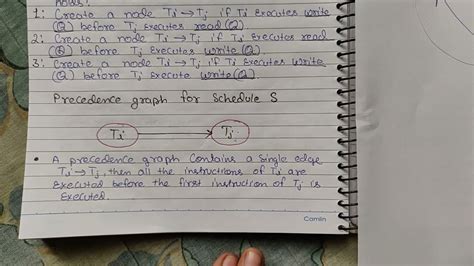 holds:
1. Create a node Ti → Tj if Ti Executes write
(Q) before Tj Executes read (Q)
2. Create a node Ti → Tj if Ti Executes read
(Q) before Tj Executes write (Q)
3. Create a node Ti → Tj if Ti Executes write
(Q) before Tj Execute write (Q).
Precedence graph for Schedule S
Ti → Tj
• A precedence graph contains a single edge
Ti → Tj, then all the instructions of Ti are
Executed before the first instruction of Tj is
Executed.
Camlin